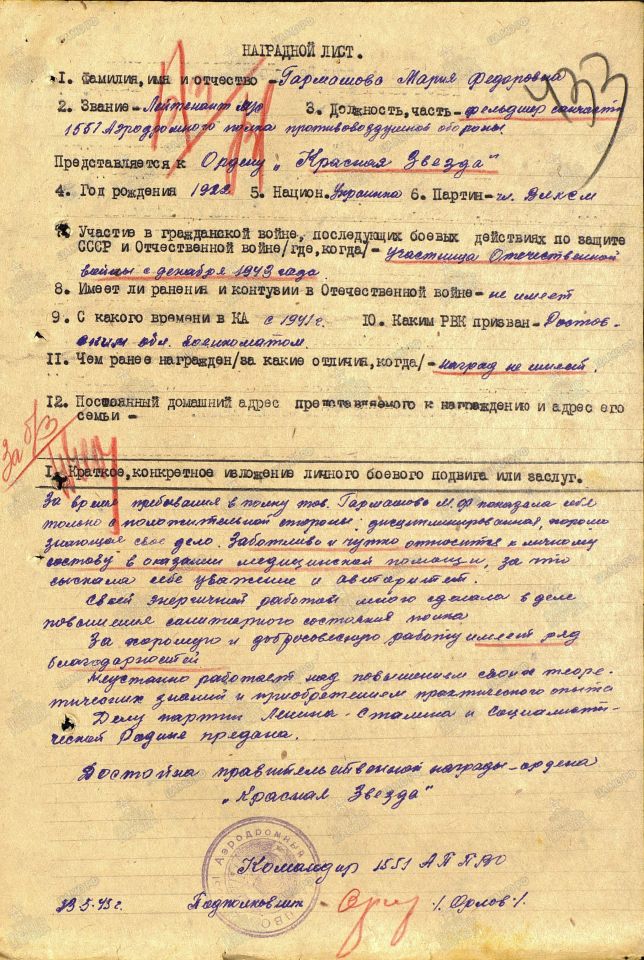 433
НАГРАДНОЙ ЛИСТ.
1. Фамилия, имя и отчество - Гармашова Мария Федоровна
2. Звание - Лейтенант м/с 3. Должность, часть - фельдшер санчасти
1551 Аэродромного полка противовоздушной обороны.
Представляется к Ордену „Красная Звезда"
4. Год рождения 1922 5. Национ. Украинка 6. Партийн- чл. ВЛКСМ
7. Участие в гражданской войне, последующих боевых действиях по защите
СССР и Отечественной войне/где, когда/- участница Отечественной
войны с декабря 1943 года.
8. Имеет ли ранения и контузии в Отечественной войне - не имеет
9. С какого времени в КА с 1941 г. 10. Каким РВК призван - Ростов-
ским обл. военкоматом.
11. Чем ранее награжден/за какие отличия, когда/- наград не имеет.
12. Постоянный домашний адрес представляемого к награждению и адрес его
семьи -
За б/з
I. Краткое, конкретное изложение личного боевого подвига или заслуг.
За время пребывания в полку тов. Гармашова М.Ф показала себя
только с положительной стороны: дисциплинированная, хорошо
знающая свое дело. Заботливо и чутко относится к личному
составу в оказании медицинской помощи, за что
сыскала себе уважение и авторитет.
Своей энергичной работой много сделала в деле
повышения санитарного состояния полка
За хорошую и добросовесную работу имеет ряд
благодарностей
Неустанно работает над повышением своих теоре-
тических знаний и приобретением практического опыта
Делу партии Ленина - Сталина и Социалисти-
ческой Родине предана.
Достойна правительственной награды - ордена
„Красная Звезда"
Командир 1551 АППВО
Подполковник /Орлов/.